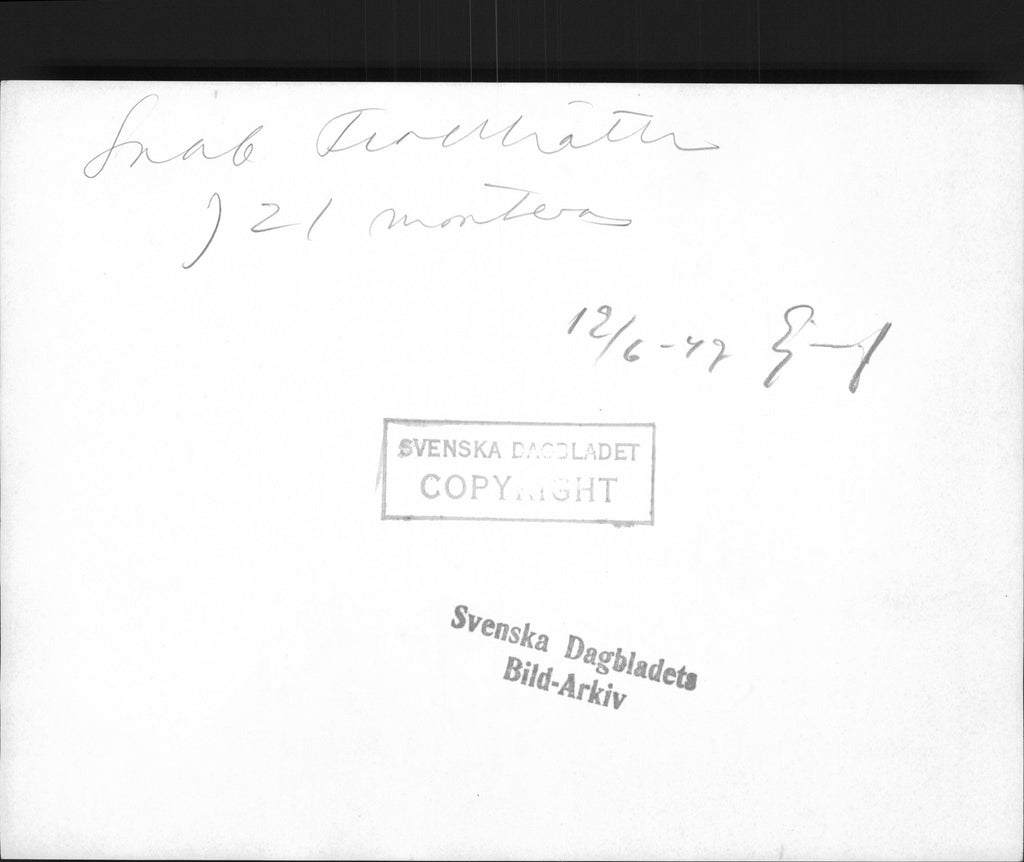 Saab Trollhättan
J 21 monteras
12/6-47
SVENSKA DAGBLADET
COPYRIGHT
Svenska Dagbladets
Bild-Arkiv